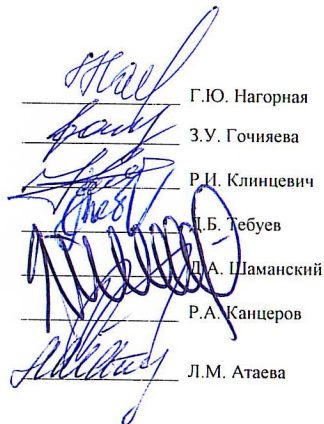 Г.Ю. Нагорная
З.У. Гочияева
Р.И. Клинцевич
Д.Б. Тебуев
Д.А. Шаманский
Р.А. Канцеров
Л.М. Атаева